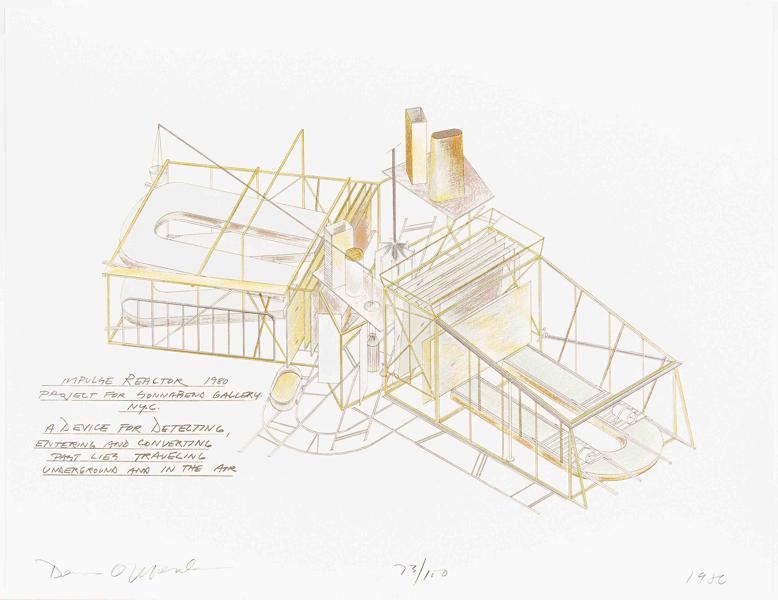 IMPULSE REACTOR 1980
PROJECT FOR SONNABEND GALLERY.
N.Y.C.
A DEVICE FOR DETECTING,
ENTERING AND CONVERTING
PAST LIES TRAVELING
UNDERGROUND AND IN THE AIR
Dennis Oppenheim
73/100
1980